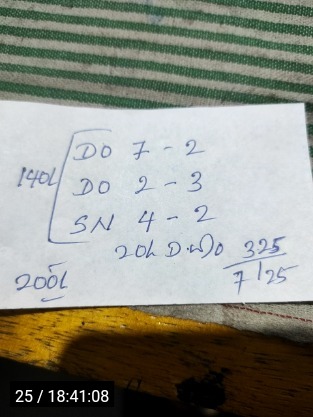 DO 7 - 2
140L DO 2 - 3
SN 4 - 2
20L 325
200L 7/25
25 / 18:41:08